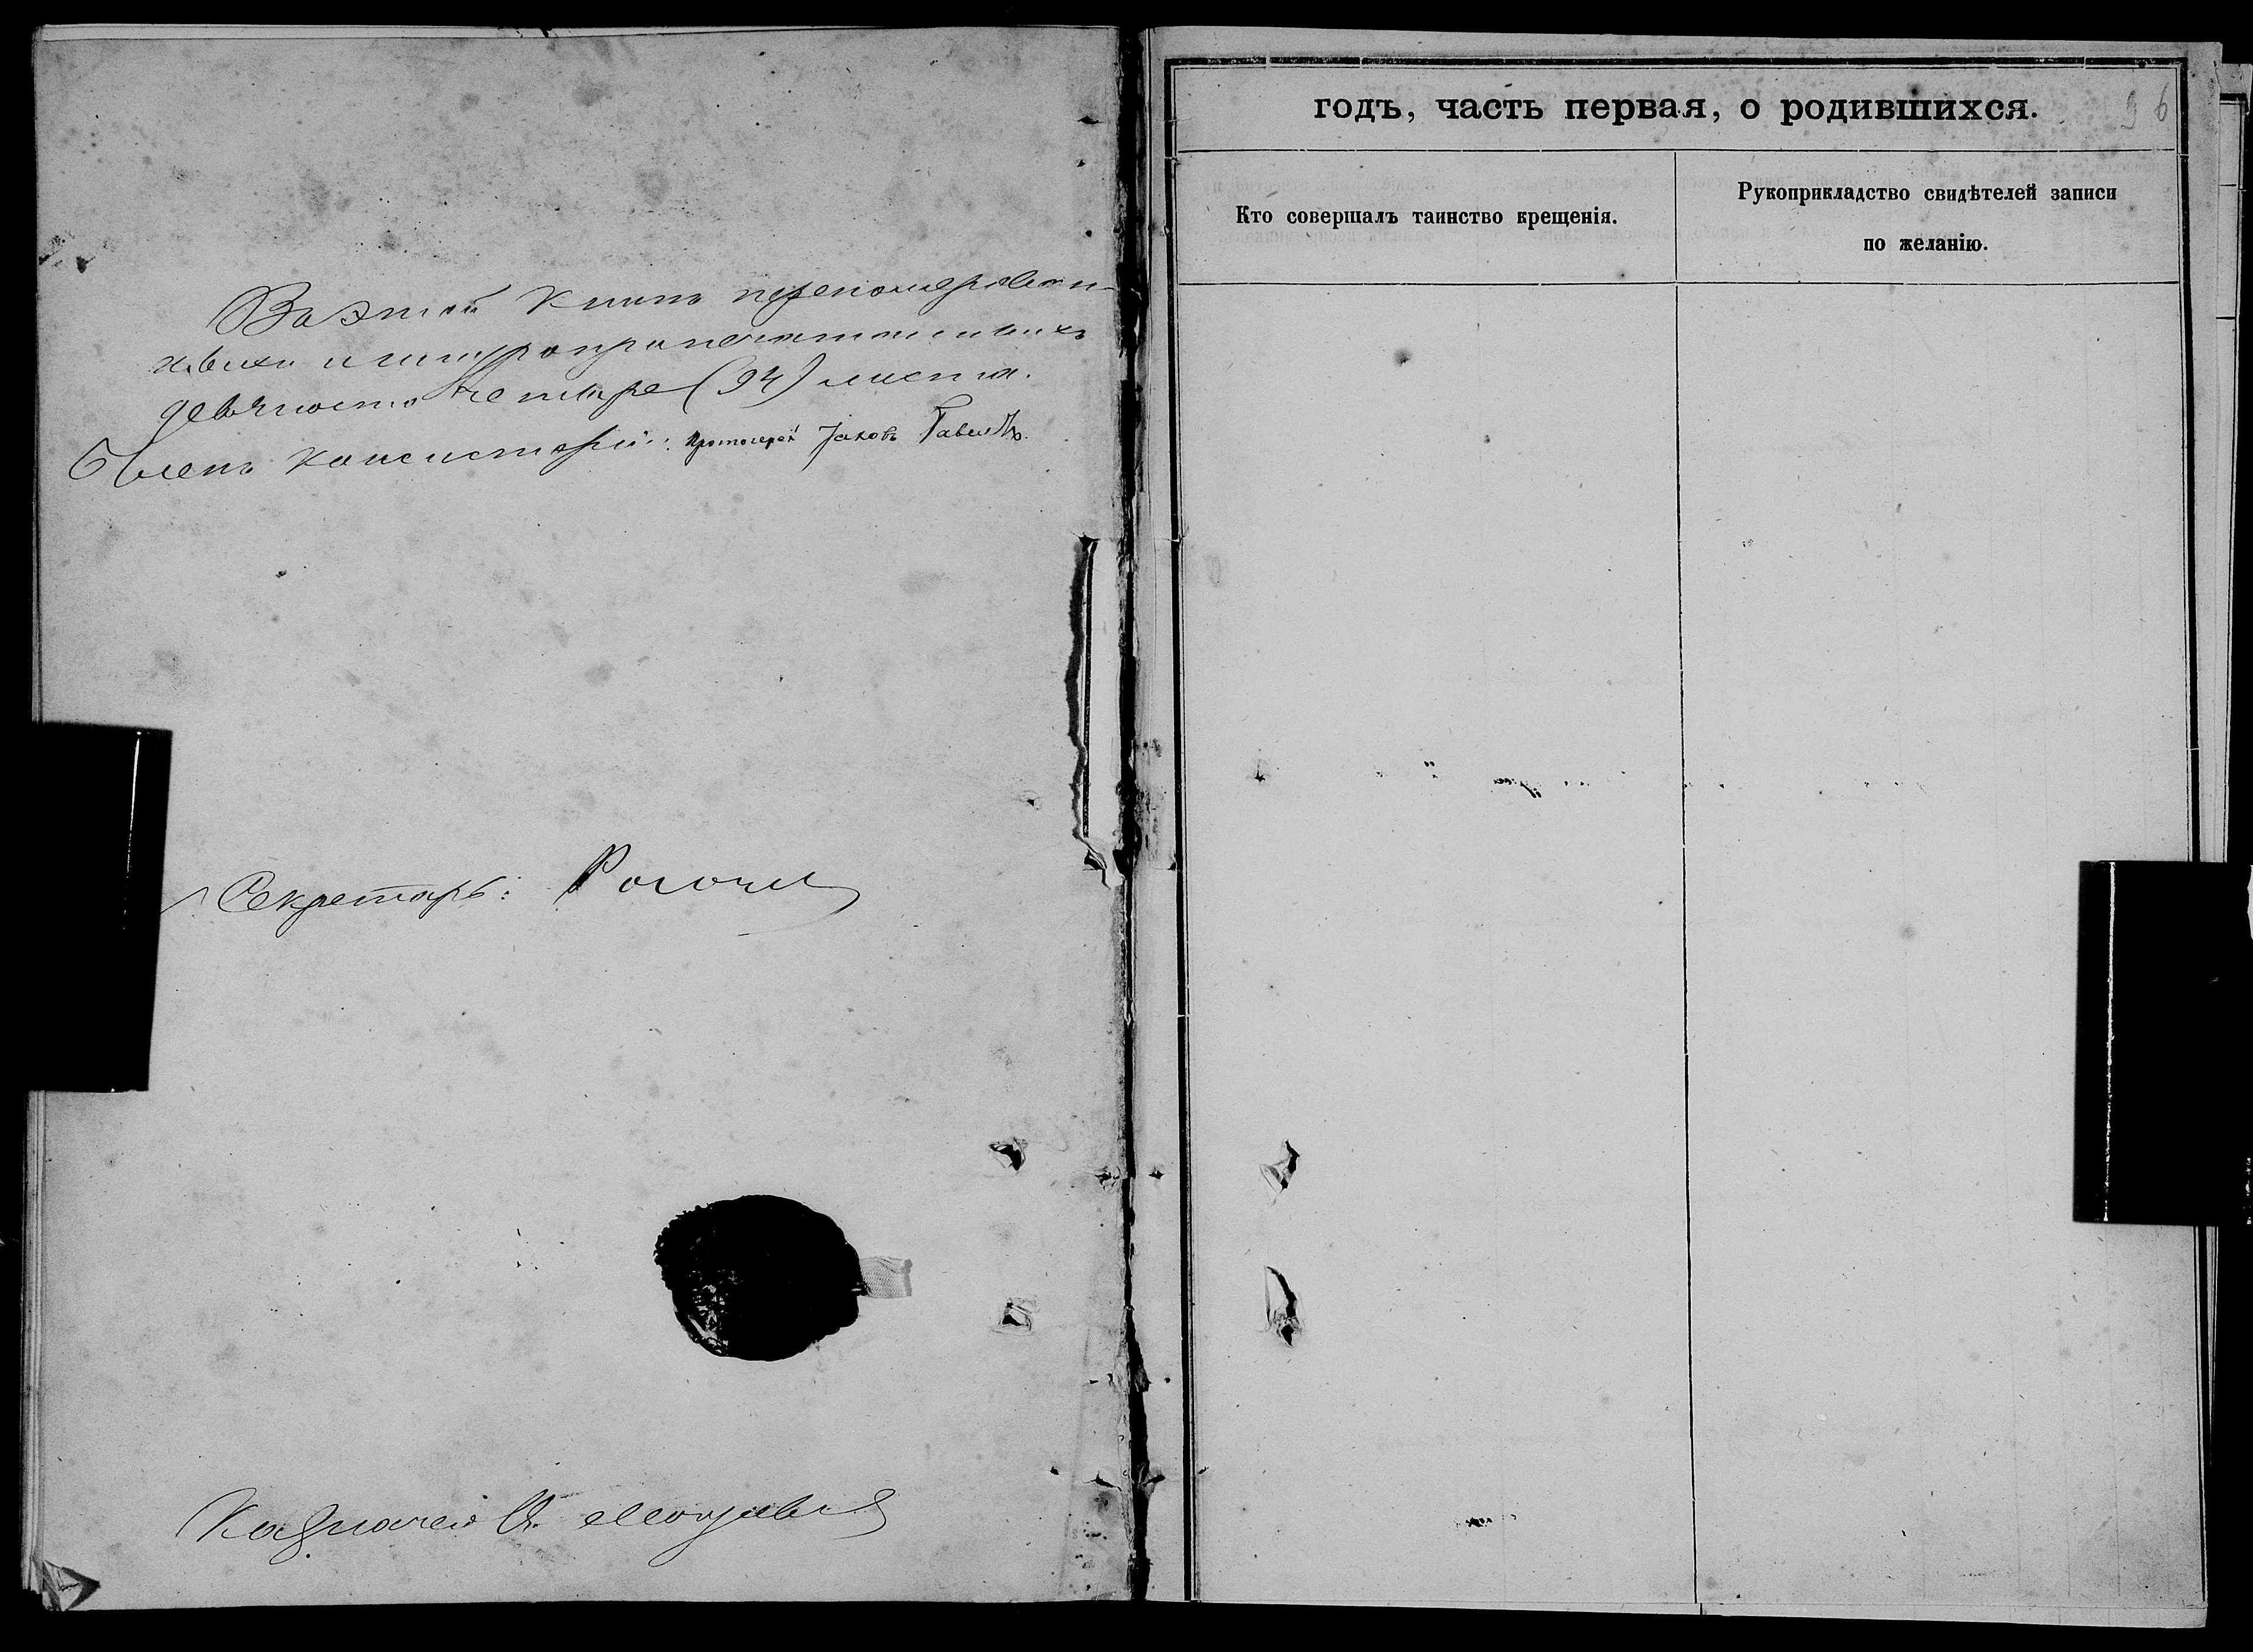 Въ этой книгѣ перенумерован-
ныхъ и шнуропропечатанныхъ
девяносто четыре (94) листа.
Членъ Консисторіи: Протоіерей Іаковъ
Секретарь:
Казначей
годъ, часть первая, о родившихся.
96
Кто совершалъ таинство крещенія.
Рукоприкладство свидѣтелей записи
по желанію.